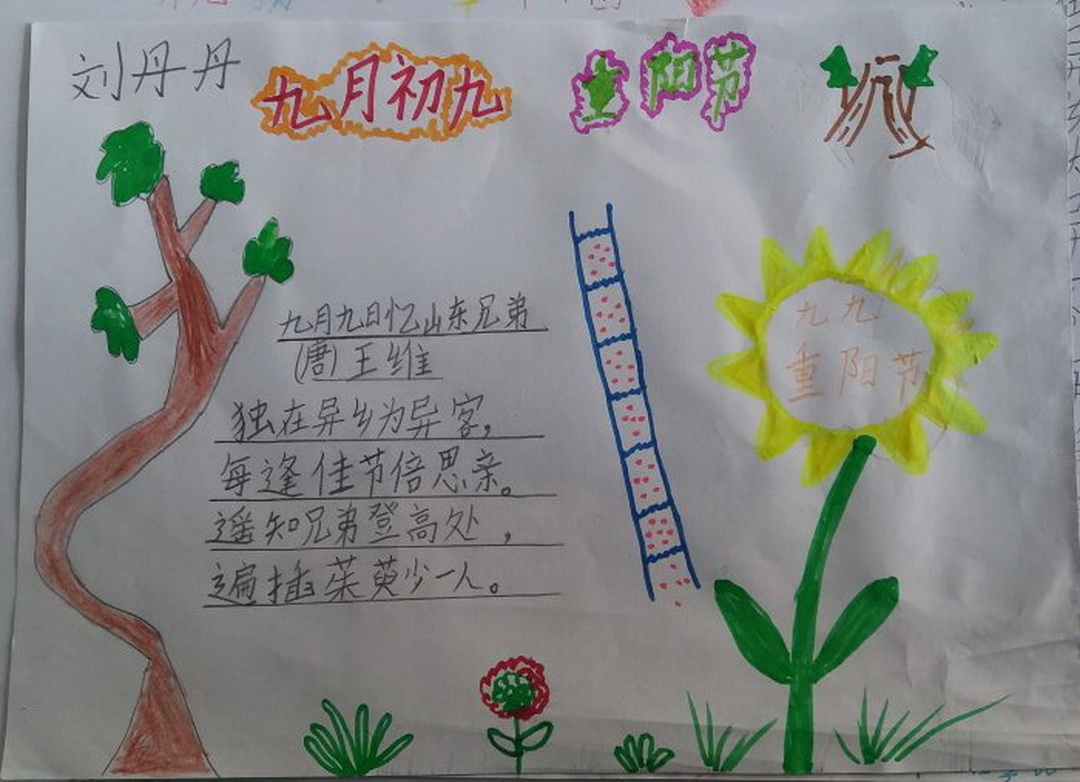 刘丹丹
九月初九 重阳节
九月九日忆山东兄弟
(唐)王维
独在异乡为异客,
每逢佳节倍思亲。
遥知兄弟登高处,
遍插茱萸少一人。
九九
重阳节